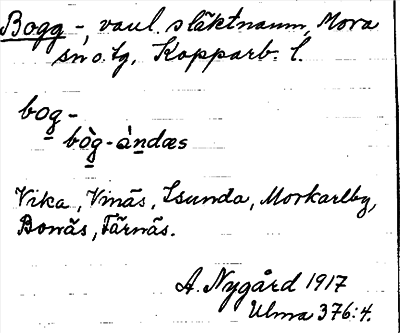 Bogg-, vanl. släktnamn, Mora
sn o. tg, Kopparb. l.
bog-
bòg-àndæs
Vika, Vinäs, Isunda, Morkarlby,
Bonäs, Färnäs.
A. Nygård 1917
Ulma 376:4.